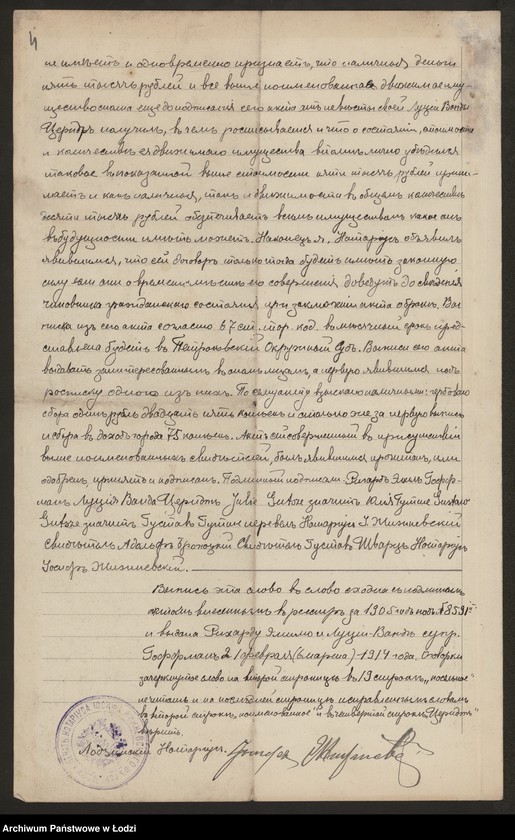 4
не имѣетъ и одновременно признаетъ, что наличныя деньги
пять тысячъ рублей и все выше поименованное движимое иму-
щество онъ еще до подписанія сего акта отъ невѣсты своей Луціи Ванды
Церндтъ получилъ, въ чемъ росписывается и что о состояніи, стоимости
и количествѣ ея движимаго имущества онъ лично убѣдился
таковое въ показанной выше стоимости пяти тысячъ рублей прини-
маетъ и какъ наличныя, такъ и движимость въ общемъ количествѣ
десяти тысячъ рублей обезпечиваетъ всѣмъ имуществомъ какое онъ
въ будущности имѣть можетъ. Наконецъ я, Нотаріусъ объявилъ
явившимся, что сей договоръ только тогда будетъ имѣть законную
силу если они о времени и мѣстѣ его совершенія доведутъ до свѣдѣнія
чиновника гражданскаго состоянія при заключеніи акта о бракѣ. Вы-
писка изъ сего акта согласно 67 ст. тор. код. въ мѣсячный срокъ пред-
ставлена будетъ въ Петроковскій Окружный Судъ. Выписи сего акта
выдавать заинтересованнымъ лицамъ, а первую явившимся подъ
росписку одного изъ нихъ. По сему акту взыскано наличными: гербоваго
сбора одинъ рубль двадцать пять копѣекъ и столько же за первую выпись
и сбора въ доходъ города 75 копѣекъ. Актъ сей совершенный въ присутствіи
выше поименованныхъ свидѣтелей, былъ явившимся прочитанъ, ими
одобренъ, принятъ и подписанъ. Подлинный подписали: Рихардъ Эмиль Гофф-
манъ Луція Ванда Церндтъ Julie Gutsze значитъ Юлія Гутше Gustaw
Gutsze значитъ Густавъ Гутше перевелъ Нотаріусъ І. Жижневскій
Свидѣтель Адольфъ Броцкій Свидѣтель Густавъ Шварцъ Нотаріусъ
Іосифъ Жижневскій.
Выпись эта слово въ слово сходна съ подлиннымъ
актомъ внесеннымъ въ реестръ за 1905 годъ подъ № 8531
и выдана Рихарду Эмилю и Луціи-Вандѣ супр.
Гоффманъ 21 февраля (6 марта) 1914 года. Оговорки
зачеркнутое слово на второй страницѣ въ 19 строкѣ,
не читать и на послѣдней страницѣ исправленнымъ словамъ
во второй строкѣ „поименованное" и въ четвертой строкѣ „Церндтъ"
вѣрить.
Лодзинскій Нотаріусъ
Archiwum Państwowe w Łodzi